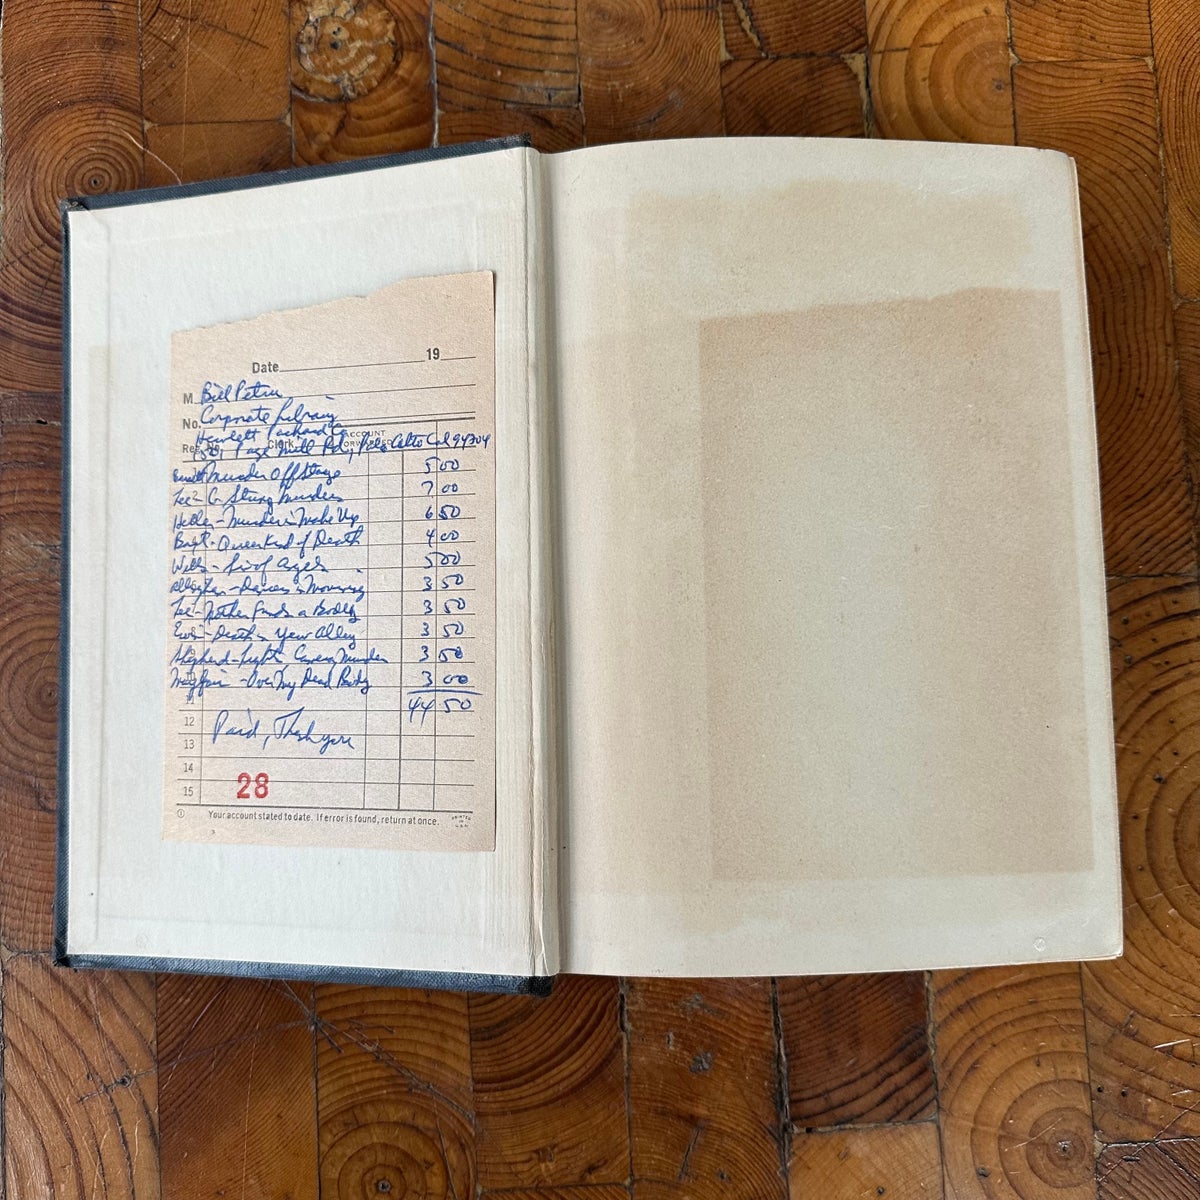 Date 19
M Bill Petru
No. Corporate Library
Hewlett Packard Co
Reg. No. Clerk ACCOUNT FORWARDED
1501 Page Mill Rd, Palo Alto Cal 94304
Murder Off Stage 5 00
Lee - G String Murders 7 00
Heller - Murder in Make Up 6 50
Queer Kind of Death 4 00
Wells - 5 00
Dances in Mourning 3 50
Lee - Mother Finds a Body 3 50
Death in Your Alley 3 50
Shepherd - Light Murder 3 50
Mayfair - Over My Dead Body 3 00
11 44 50
12 Paid, Thank you
13
14
28
15
Your account stated to date. If error is found, return at once.
PRINTED IN U.S.A.